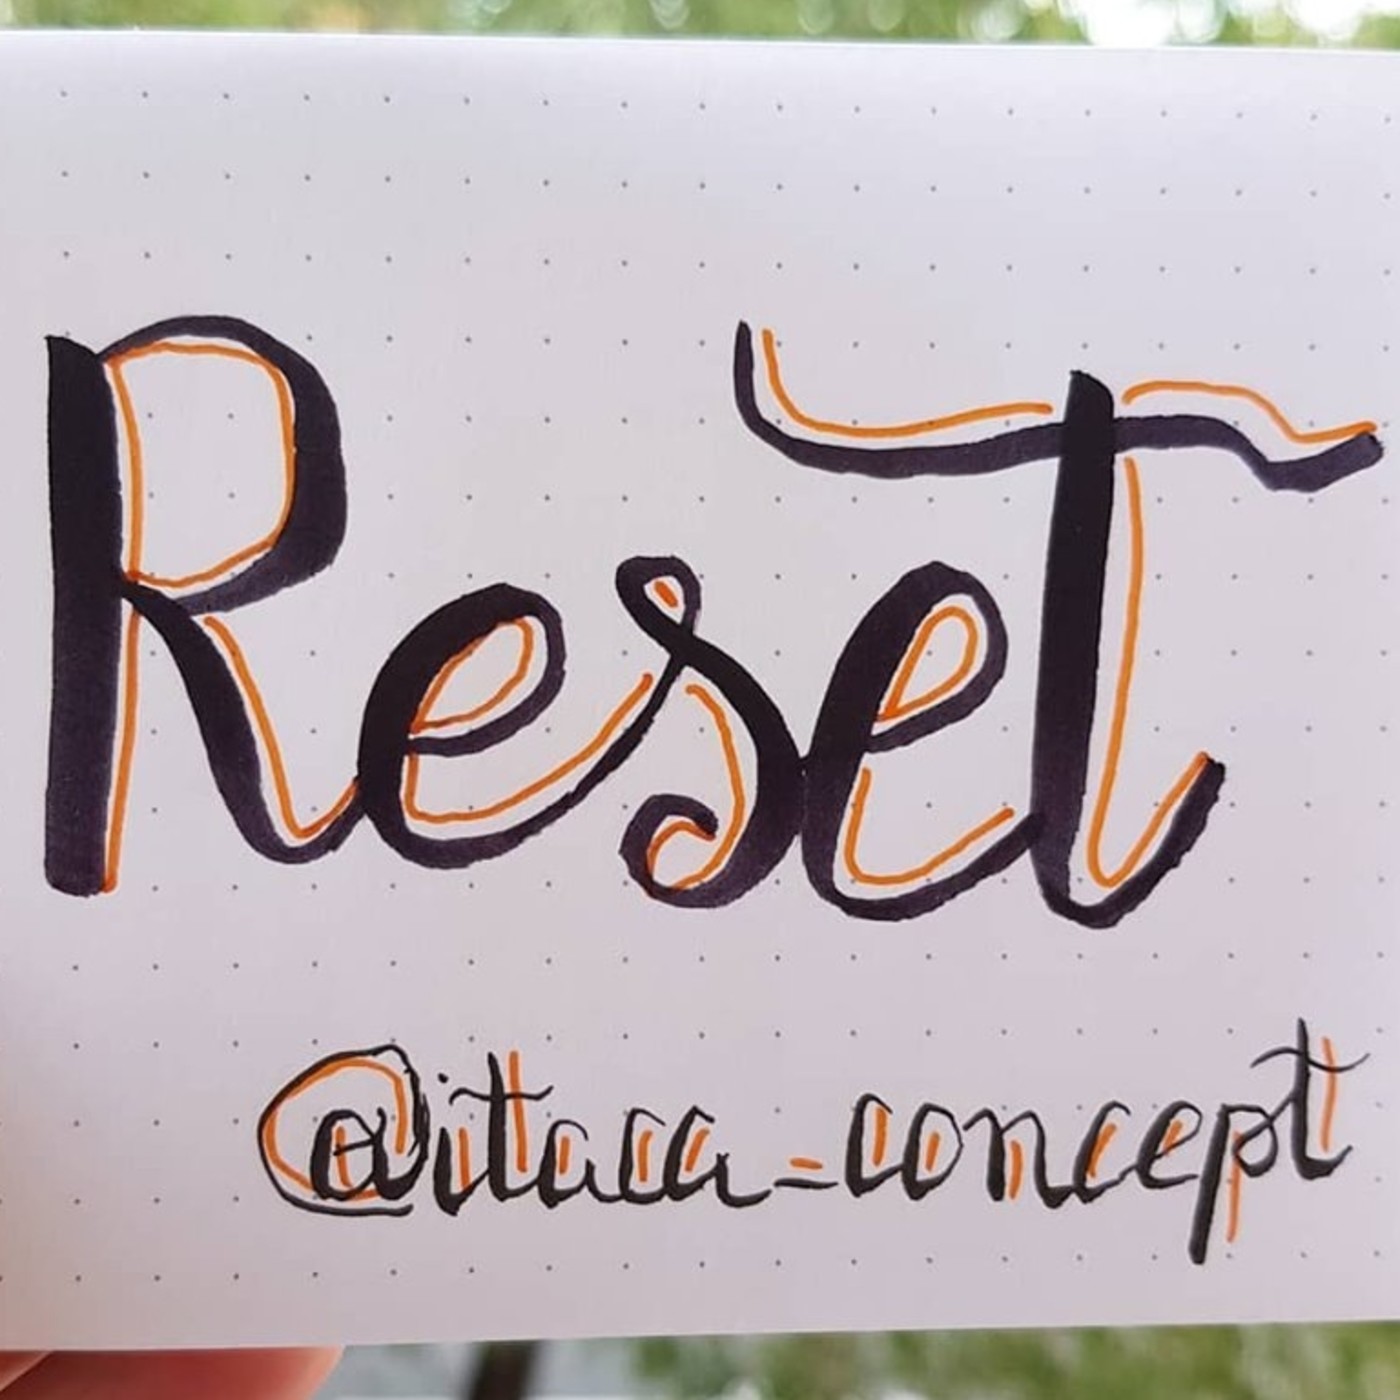 Reset
@itaca_concept